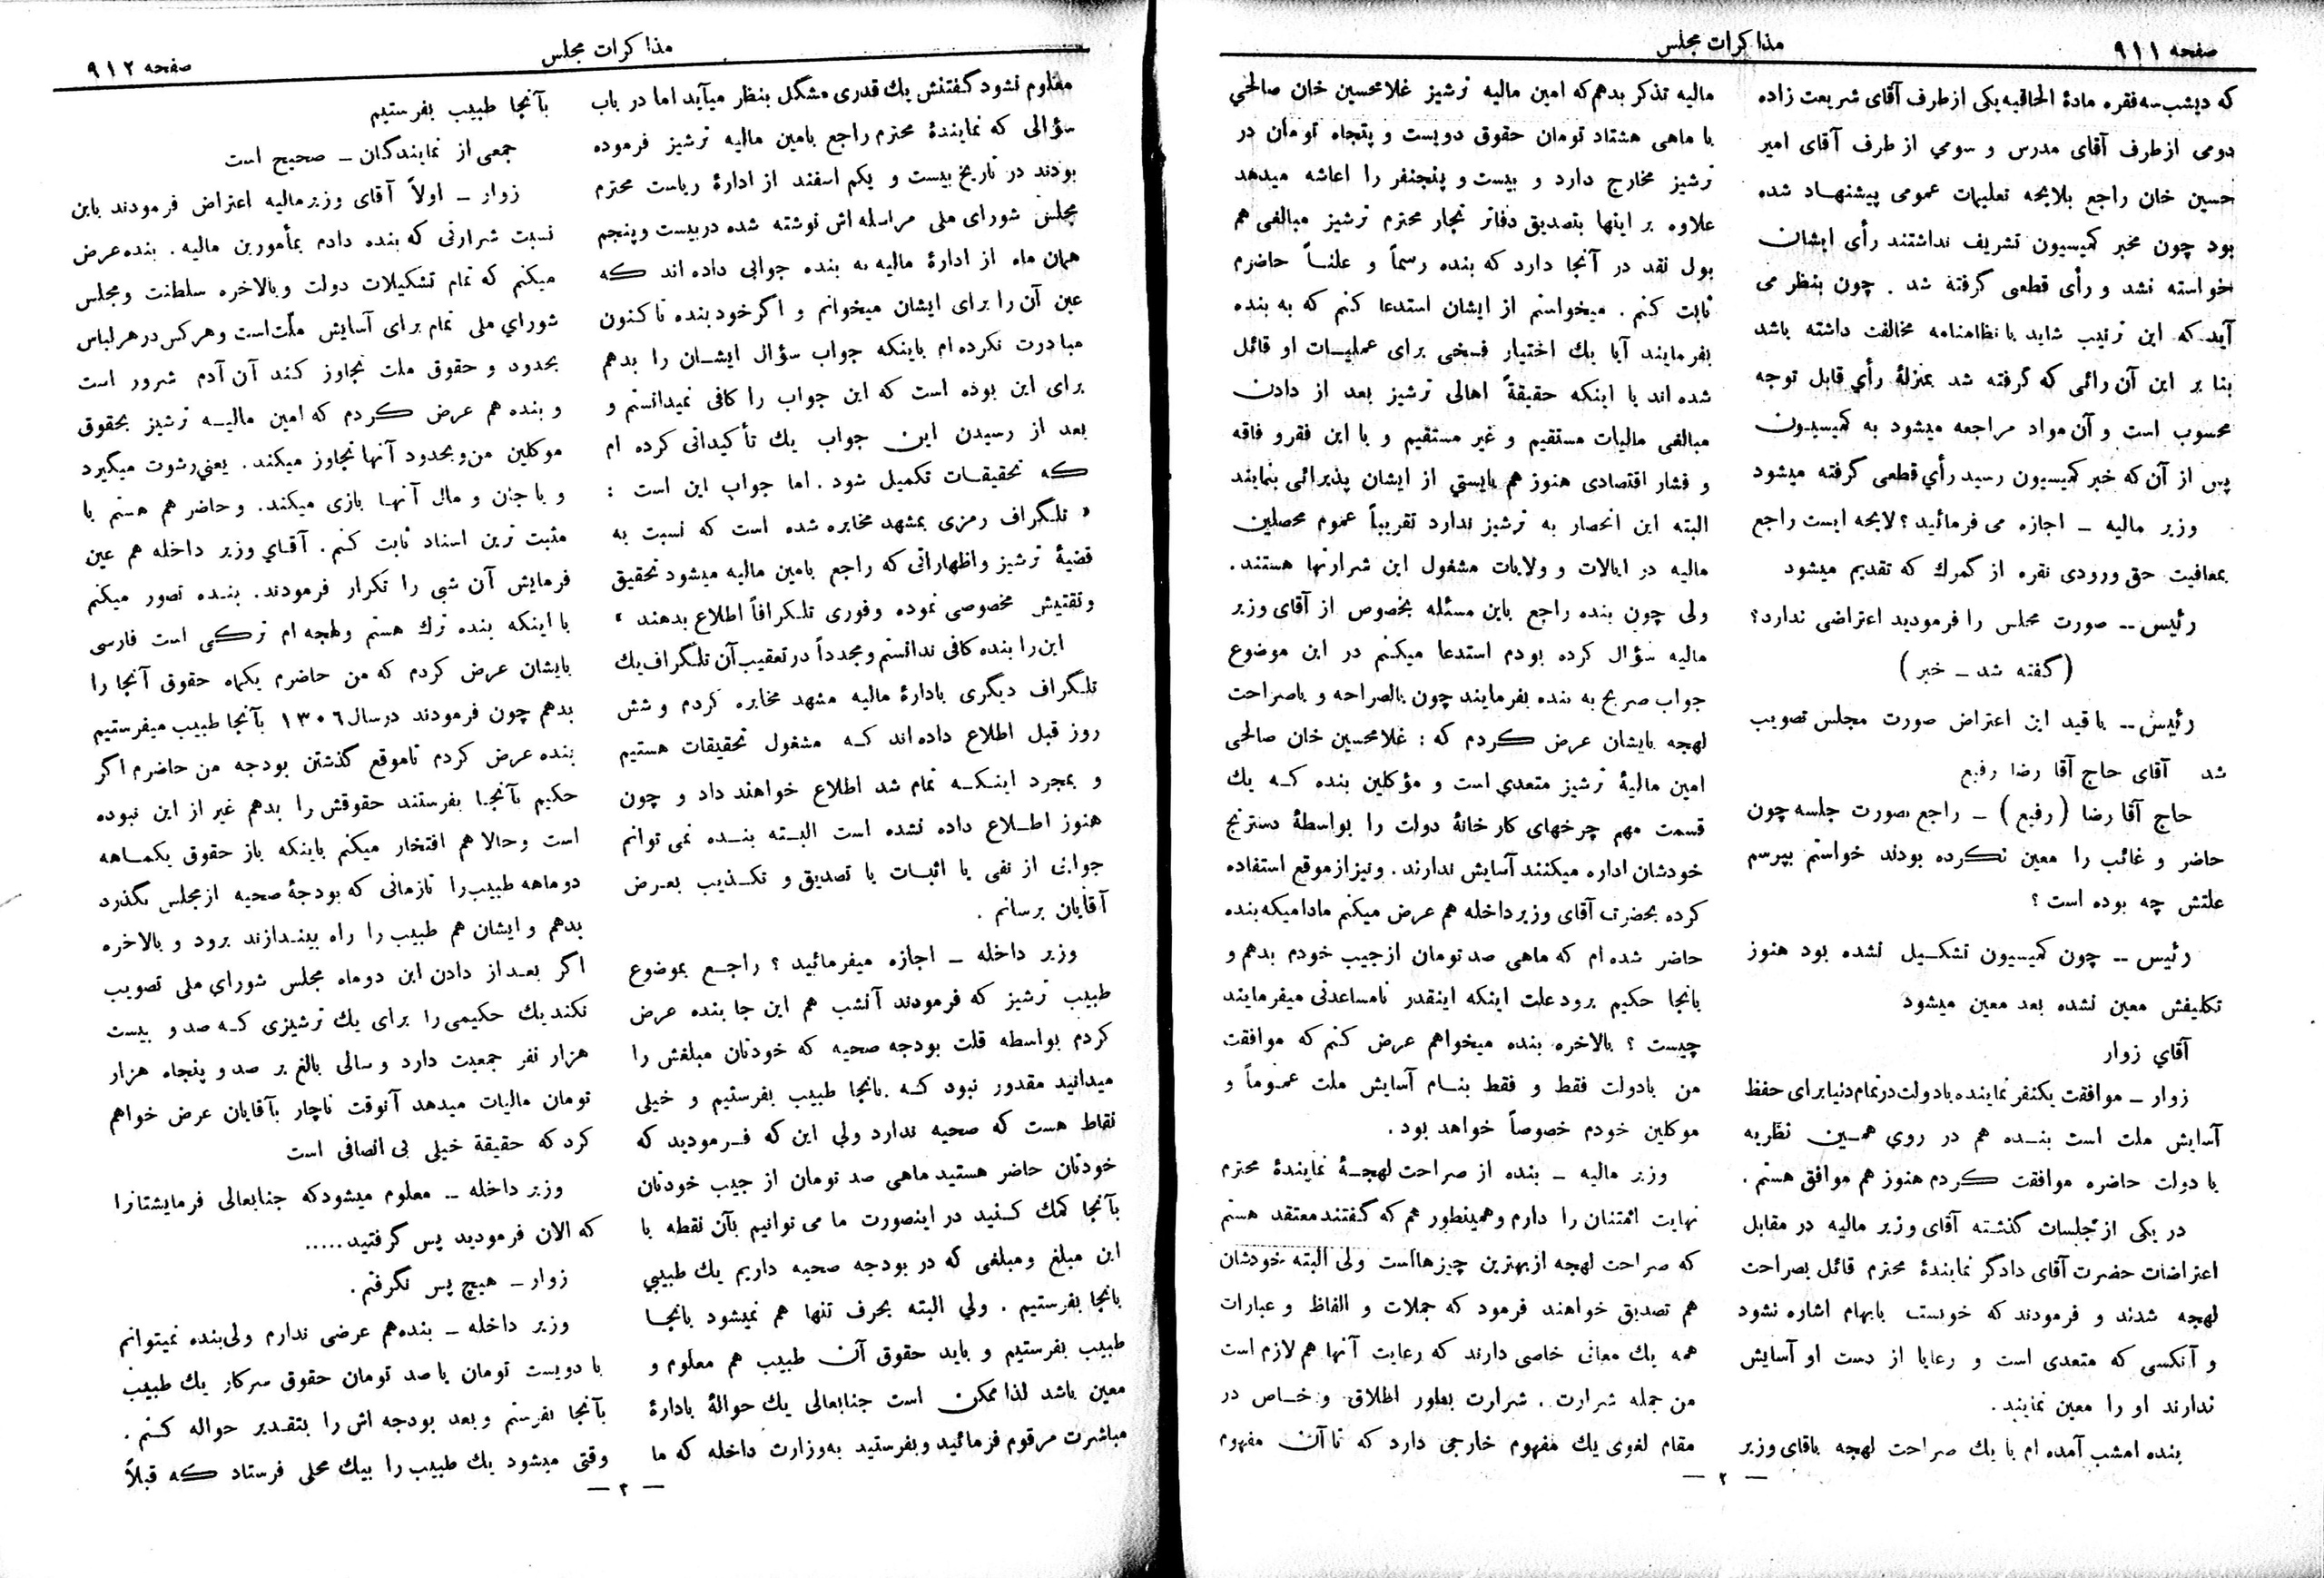 صفحه ۹۱۱
مذاکرات مجلس
که دیشب سه فقره مادهٔ الحاقیه یکی از طرف آقای شریعت زاده
دومی از طرف آقای مدرس و سومی از طرف آقای امیر
حسین خان راجع بلایحه تعلیمات عمومی پیشنهاد شده
بود چون مخبر کمیسیون تشریف نداشتند رأی ایشان
خواسته نشد و رأی قطعی گرفته شد . چون بنظر می
آید که این ترتیب شاید با نظامنامه مخالفت داشته باشد
بنا بر این آن رائی که گرفته شد بمنزلهٔ رأی قابل توجه
محسوب است و آن مواد مراجعه میشود به کمیسیون
پس از آن که خبر کمیسیون رسید رأی قطعی گرفته میشود
وزیر مالیه ــ اجازه می فرمائید ؟ لایحه ایست راجع
بمعافیت حق ورودی نقره از گمرك که تقدیم میشود
رئیس ــ صورت مجلس را فرمودید اعتراضی ندارد؟
( گفته شد ــ خیر )
رئیس ــ با قید این اعتراض صورت مجلس تصویب
شد آقای حاج آقا رضا رفیع
حاج آقا رضا ( رفیع ) ــ راجع بصورت جلسه چون
حاضر و غائب را معین نکرده بودند خواستم بپرسم
علتش چه بوده است ؟
رئیس ــ چون کمیسیون تشکیل نشده بود هنوز
تکلیفش معین نشده بعد معین میشود
آقای زوار
زوار ــ موافقت یکنفر نماینده با دولت در تمام دنیا برای حفظ
آسایش ملت است بنده هم در روی همین نظریه
با دولت حاضره موافقت کردم هنوز هم موافق هستم .
در یکی از جلسات گذشته آقای وزیر مالیه در مقابل
اعتراضات حضرت آقای دادگر نمایندهٔ محترم قائل بصراحت
لهجه شدند و فرمودند که خوبست بابهام اشاره نشود
و آنکسی که متعدی است و رعایا از دست او آسایش
ندارند او را معین نمایند .
بنده امشب آمده ام با یك صراحت لهجه بآقای وزیر
مالیه تذکر بدهم که امین مالیه ترشیز غلامحسین خان صالحی
با ماهی هشتاد تومان حقوق دویست و پنجاه تومان در
ترشیز مخارج دارد و بیست و پنجنفر را اعاشه میدهد
علاوه بر اینها بتصدیق دفاتر تجار محترم ترشیز مبالغی هم
پول نقد در آنجا دارد که بنده رسماً و علناً حاضرم
ثابت کنم . میخواستم از ایشان استدعا کنم که به بنده
بفرمایند آیا یك اختیار فسخی برای عملیات او قائل
شده اند با اینکه حقیقةً اهالی ترشیز بعد از دادن
مبالغی مالیات مستقیم و غیر مستقیم و با این فقر و فاقه
و فشار اقتصادی هنوز هم بایستی از ایشان پذیرائی بنمایند
البته این انحصار به ترشیز ندارد تقریباً عموم محصلین
مالیه در ایالات و ولایات مشغول این شرارتها هستند .
ولی چون بنده راجع باین مسئله بخصوص از آقای وزیر
مالیه سؤال کرده بودم استدعا میکنم در این موضوع
جواب صریح به بنده بفرمایند چون بالصراحه و باصراحت
لهجه بایشان عرض کردم که : غلامحسین خان صالحی
امین مالیهٔ ترشیز متعدی است و مؤکلین بنده که یك
قسمت مهم چرخهای کارخانهٔ دولت را بواسطهٔ دسترنج
خودشان اداره میکنند آسایش ندارند . و نیز از موقع استفاده
کرده بحضرت آقای وزیر داخله هم عرض میکنم مادامیکه بنده
حاضر شده ام که ماهی صد تومان از جیب خودم بدهم و
بانجا حکیم برود علت اینکه اینقدر نامساعدتی میفرمایند
چیست ؟ بالاخره بنده میخواهم عرض کنم که موافقت
من بادولت فقط و فقط بنام آسایش ملت عموماً و
موکلین خودم خصوصاً خواهد بود .
وزیر مالیه ــ بنده از صراحت لهجهٔ نمایندهٔ محترم
نهایت امتنان را دارم و همینطور هم که گفتند معتقد هستم
که صراحت لهجه از بهترین چیزهااست ولی البته خودشان
هم تصدیق خواهند فرمود که جملات و الفاظ و عبارات
همه یك معانی خاصی دارند که رعایت آنها هم لازم است
من جمله شرارت . شرارت بطور اطلاق و خاص در
مقام لغوی یك مفهوم خارجی دارد که تا آن مفهوم
— ۲ —
مذاکرات مجلس
صفحه ۹۱۲
معلوم نشود گفتنش یك قدری مشگل بنظر میآید اما در باب
سؤالی که نمایندهٔ محترم راجع بامین مالیه ترشیز فرموده
بودند در تاریخ بیست و یکم اسفند از ادارهٔ ریاست محترم
مجلس شورای ملی مراسله اش نوشته شده در بیست و پنجم
همان ماه از ادارهٔ مالیه به بنده جوابی داده اند که
عین آن را برای ایشان میخوانم و اگر خود بنده تا کنون
مبادرت نکرده ام باینکه جواب سؤال ایشان را بدهم
برای این بوده است که این جواب را کافی نمیدانستم و
بعد از رسیدن این جواب یك تأکیداتی کرده ام
که تحقیقات تکمیل شود . اما جواب این است :
« تلگراف رمزی بمشهد مخابره شده است که نسبت به
قضیهٔ ترشیز واظهاراتی که راجع بامین مالیه میشود تحقیق
وتفتیش مخصوصی نموده وفوری تلگرافاً اطلاع بدهند »
این را بنده کافی ندانستم ومجدداً در تعقیب آن تلگراف یك
تلگراف دیگری بادارهٔ مالیه مشهد مخابره کردم و شش
روز قبل اطلاع داده اند که مشغول تحقیقات هستیم
و بمجرد اینکه تمام شد اطلاع خواهند داد و چون
هنوز اطلاع داده نشده است البته بنده نمی توانم
جوابی از نفی یا اثبات یا تصدیق و تکذیب بعرض
آقایان برسانم .
وزیر داخله ــ اجازه میفرمائید ؟ راجع بموضوع
طبیب ترشیز که فرمودند آنشب هم این جا بنده عرض
کردم بواسطه قلت بودجه صحیه که خودتان مبلغش را
میدانید مقدور نبود که بانجا طبیب بفرستیم و خیلی
نقاط هست که صحیه ندارد ولی این که فرمودید که
خودتان حاضر هستید ماهی صد تومان از جیب خودتان
بآنجا کمك کنید در اینصورت ما می توانیم بآن نقطه با
این مبلغ ومبلغی که در بودجه صحیه داریم یك طبیبی
بانجا بفرستیم . ولی البته بحرف تنها هم نمیشود بانجا
طبیب بفرستیم و باید حقوق آن طبیب هم معلوم و
معین باشد لذا ممکن است جنابعالی یك حوالهٔ بادارهٔ
مباشرت مرقوم فرمائید وبفرستید به وزارت داخله که ما
بآنجا طبیب بفرستیم
جمعی از نمایندگان ــ صحیح است
زوار ــ اولاً آقای وزیر مالیه اعتراض فرمودند باین
نسبت شرارتی که بنده دادم بمأمورین مالیه . بنده عرض
میکنم که تمام تشکیلات دولت وبالاخره سلطنت ومجلس
شورای ملی تمام برای آسایش ملت است وهر کس در هر لباس
بحدود و حقوق ملت تجاوز کند آن آدم شرور است
و بنده هم عرض کردم که امین مالیه ترشیز بحقوق
موکلین من و بحدود آنها تجاوز میکند . یعنی رشوت میگیرد
و با جان و مال آنها بازی میکند . و حاضر هم هستم با
مثبت ترین اسناد ثابت کنم . آقای وزیر داخله هم عین
فرمایش آن شبی را تکرار فرمودند . بنده تصور میکنم
با اینکه بنده ترك هستم ولهجه ام ترکی است فارسی
بایشان عرض کردم که من حاضرم یکماه حقوق آنجا را
بدهم چون فرمودند در سال ۱۳۰۶ بآنجا طبیب میفرستیم
بنده عرض کردم تاموقع گذشتن بودجه من حاضرم اگر
حکیم بآنجا بفرستند حقوقش را بدهم غیر از این نبوده
است وحالا هم افتخار میکنم باینکه باز حقوق یکماهه
دو ماهه طبیب را تازمانی که بودجهٔ صحیه از مجلس بگذرد
بدهم و ایشان هم طبیب را راه بیندازند برود و بالاخره
اگر بعد از دادن این دوماه مجلس شورای ملی تصویب
نکند یك حکیمی را برای یك ترشیزی که صد و بیست
هزار نفر جمعیت دارد و سالی بالغ بر صد و پنجاه هزار
تومان مالیات میدهد آنوقت ناچار بآقایان عرض خواهم
کرد که حقیقة خیلی بی انصافی است
وزیر داخله ــ معلوم میشود که جنابعالی فرمایشتانرا
که الان فرمودید پس گرفتید .....
زوار ــ هیچ پس نگرفتم .
وزیر داخله ــ بنده هم عرضی ندارم ولی بنده نمیتوانم
با دویست تومان یا صد تومان حقوق سرکار یك طبیب
بآنجا بفرستم و بعد بودجه اش را بتقدیر حواله کنم .
وقتی میشود یك طبیب را بیك محلی فرستاد که قبلاً
— ۲ —